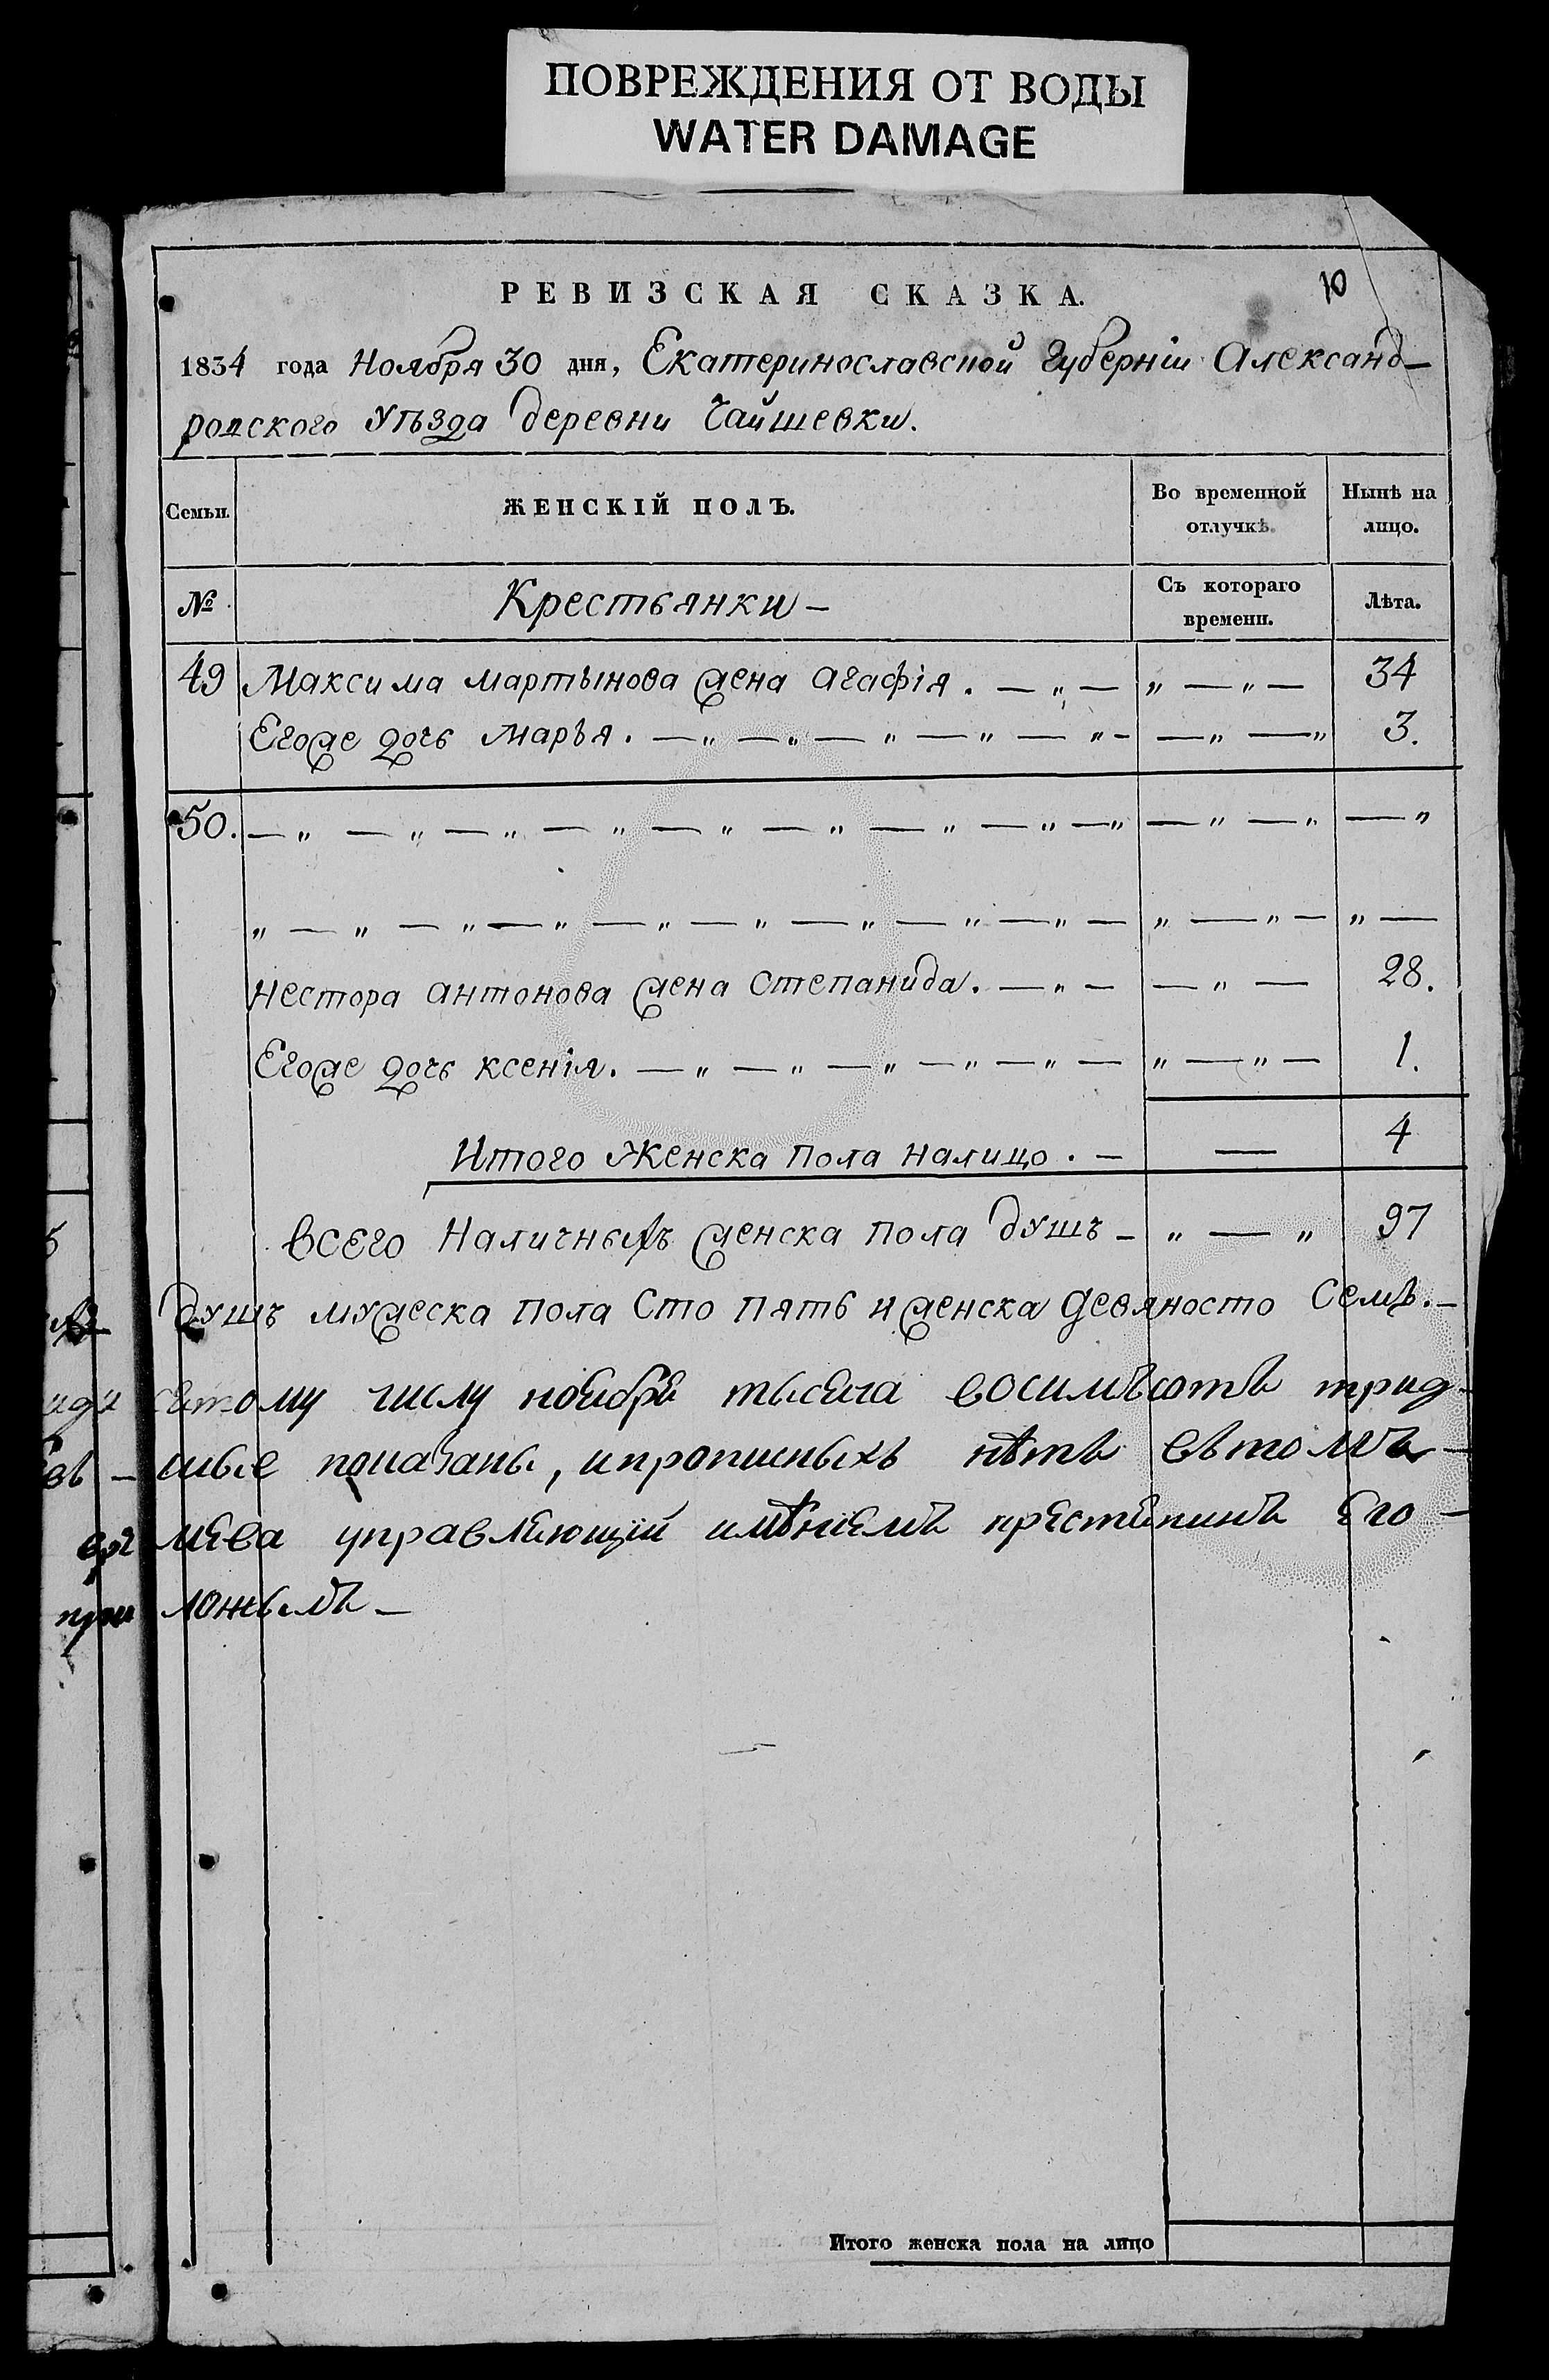 ПОВРЕЖДЕНИЯ ОТ ВОДЫ
WATER DAMAGE
10
РЕВИЗСКАЯ СКАЗКА.
1834 года Ноября 30 дня, Екатеринославской Губерніи Александ—
ровского Уѣзда деревни
Семьи. ЖЕНСКІЙ ПОЛЪ. Во временной отлучкѣ. Нынѣ на лицо.
№ Крестьянки – Съ котораго времени. Лѣта.
49 Максима мартынова жена агафія. — „ — „ — „ — 34
Егоже дочь марья. — „ — „ — „ — „ — „ – — „ — „ 3.
50. — „ — „ — „ — „ — „ — „ — „ — „ — „ — „ — „ — „
„ — „ — „ — „ — „ — „ — „ — „ — „ — „ — „ — „ —
Нестора антонова жена степанида. — „ — — „ — 28.
Егоже дочь ксенія. — „ — „ — „ — „ — „ — „ — „ — 1.
Итого Женска пола налицо. — — 4
Всего Наличныхъ женска пола душъ – „ — „ 97
душъ мужеска пола сто пять и женска девяносто семь. —
сятому числу ноября тысяча восимьсотъ трид-
ные показаны, и прописныхъ нѣтъ въ томъ –
мева управляющій имѣніемъ крестьянинъ Его –
при ложилъ —
Итого женска пола на лицо